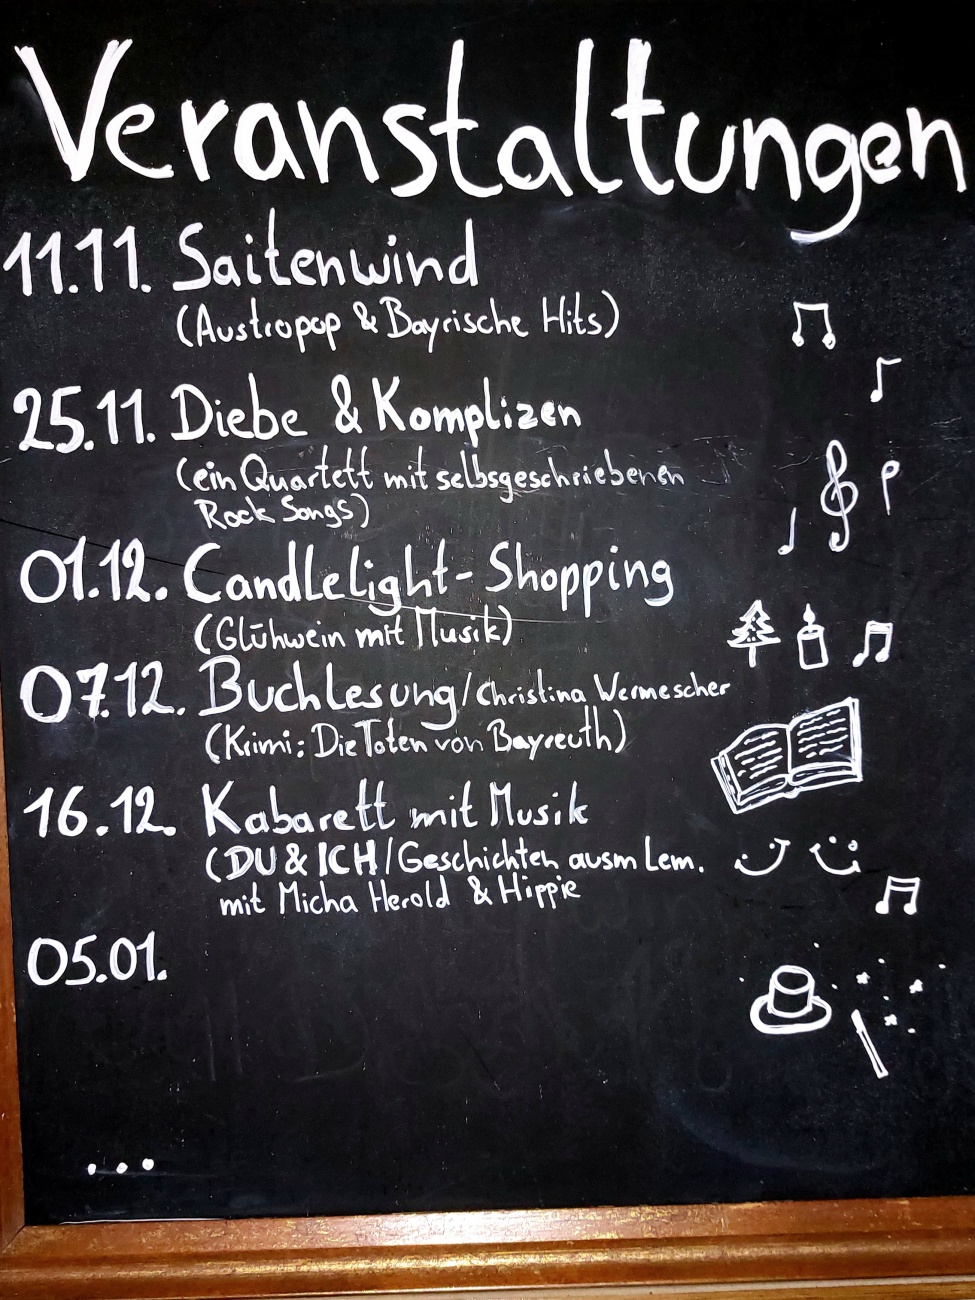 Veranstaltungen
11.11. Saitenwind
(Austropop & Bayrische Hits)
25.11. Diebe & Komplizen
(ein Quartett mit selbsgeschriebenen
Rock Songs)
01.12. Candlelight-Shopping
(Glühwein mit Musik)
07.12. Buchlesung/Christina Wermescher
(Krimi: Die Toten von Bayreuth)
16.12. Kabarett mit Musik
(DU & ICH/Geschichten ausm Lem.
mit Micha Herold & Hippie
05.01.
...